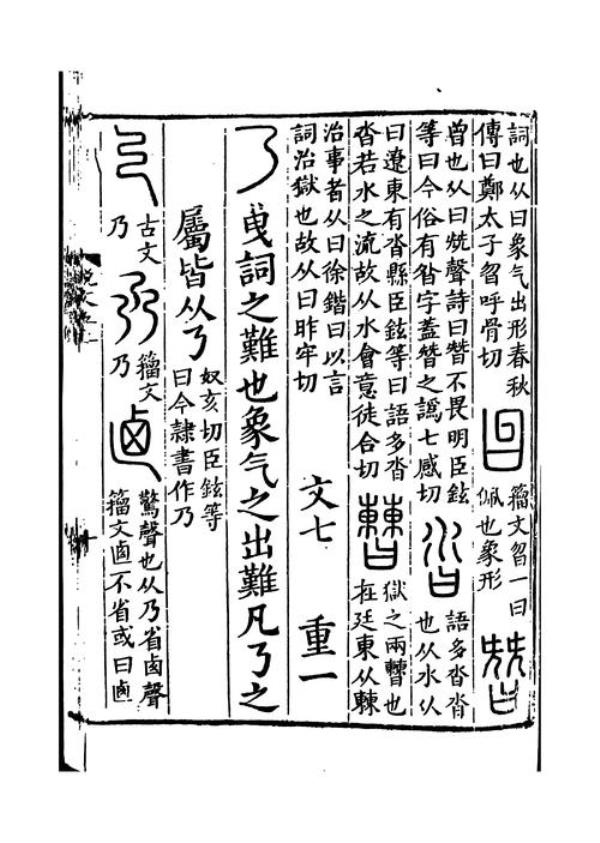 詞也从曰象气出形春秋
傳曰鄭太子曶呼骨切
籀文曶一曰
佩也象形
朁
曾也从曰兓聲詩曰朁不畏明臣鉉
等曰今俗有昝字蓋朁之譌七感切
沓
語多沓沓
也从水从
曰遼東有沓縣臣鉉等曰語多沓
沓若水之流故从水會意徒合切
𣍘
獄之兩𣍘也
在廷東从棘
治事者从曰徐鍇曰以言
詞治獄也故从曰昨牢切
文七 重一
𠄎 曳詞之難也象气之出難凡𠄎之
屬皆从𠄎
奴亥切臣鉉等
曰今隸書作乃
古文
乃
籀文
乃
驚聲也从乃省卥聲
籀文卥不省或曰卥